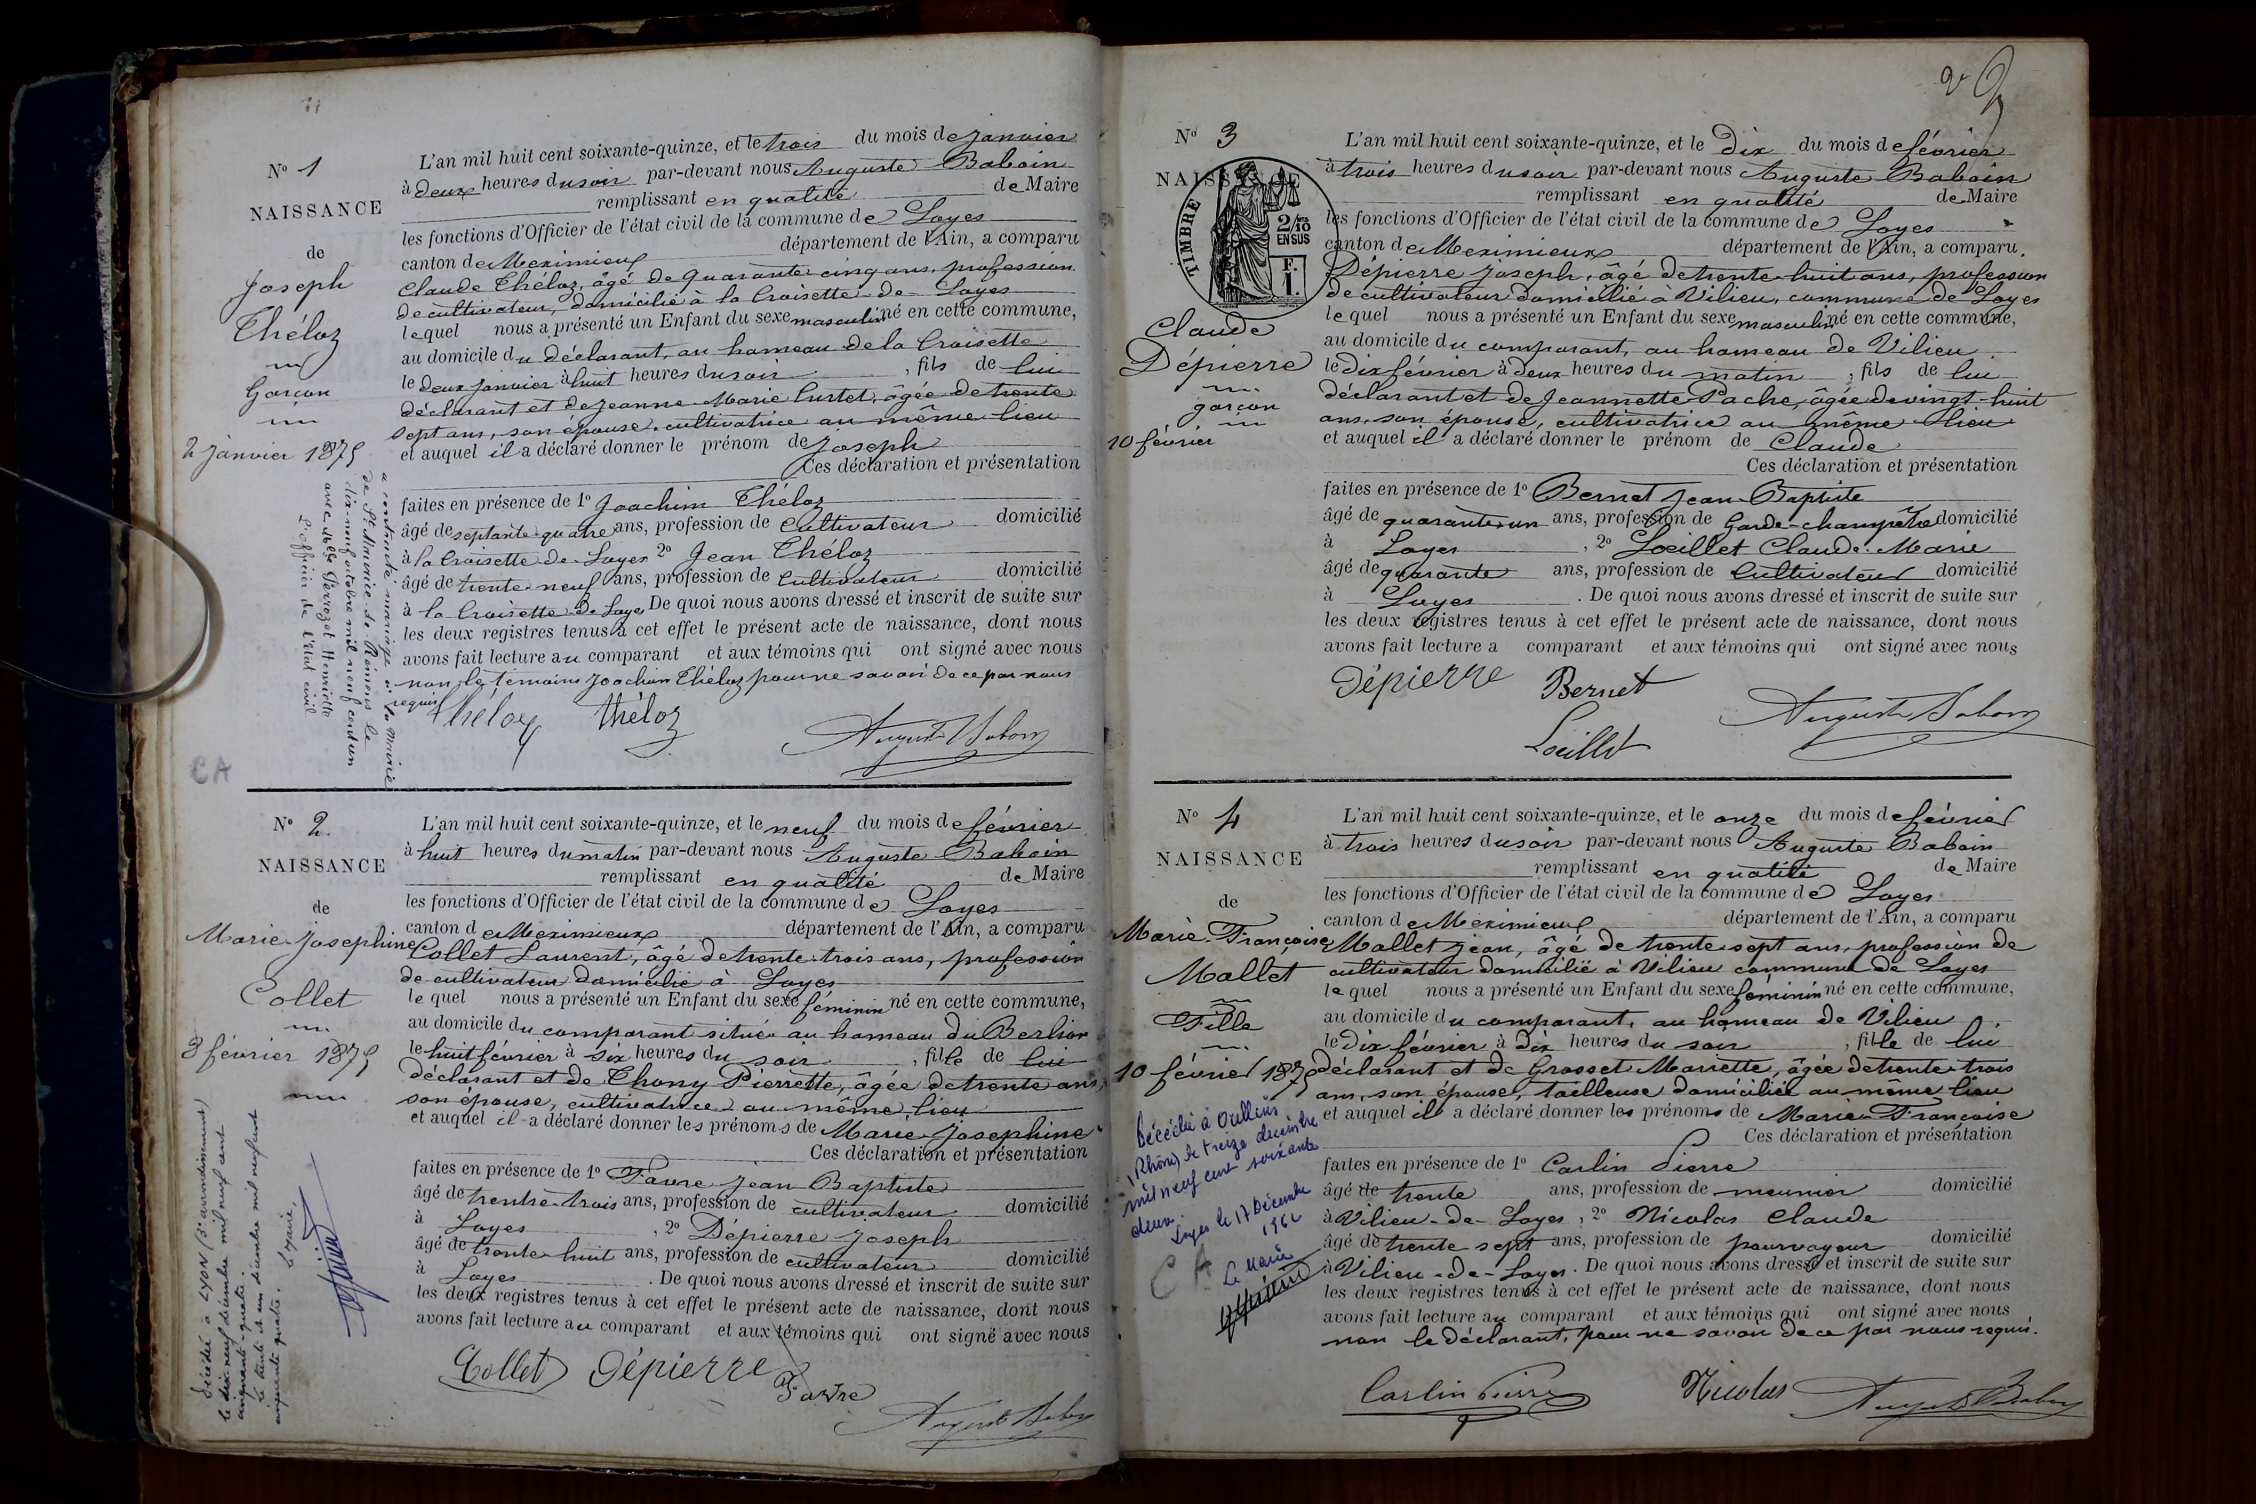 N° 1
NAISSANCE
de
Joseph
Théloz
Garçon
2 janvier 1875
a contracté mariage à la mairie
de St Maurice de Rémens le
dix-neuf octobre mil neuf cent un
avec Delle Perrozet Henriette
L'officier de l'état civil
CA
L'an mil huit cent soixante-quinze, et le trois du mois de janvier
à deux heures du soir par-devant nous Auguste Baboin
remplissant en qualité de Maire
les fonctions d'Officier de l'état civil de la commune de Loyes
canton de Meximieux département de l'Ain, a comparu
Claude Théloz, âgé de quarante cinq ans, profession
de cultivateur, domicilié à la Croisette de Loyes
lequel nous a présenté un Enfant du sexe masculin né en cette commune,
au domicile du déclarant, au hameau de la Croisette
le deux janvier à huit heures du soir , fils de lui
déclarant et de Jeanne Marie Curtet, âgée de trente
sept ans, son épouse, cultivatrice au même lieu
et auquel il a déclaré donner le prénom de Joseph
Ces déclaration et présentation
faites en présence de 1° Joachim Théloz
âgé de septante quatre ans, profession de Cultivateur domicilié
à la Croisette de Loyes 2° Jean Théloz
âgé de trente neuf ans, profession de Cultivateur domicilié
à la Croisette de Loyes De quoi nous avons dressé et inscrit de suite sur
les deux registres tenus à cet effet le présent acte de naissance, dont nous
avons fait lecture au comparant et aux témoins qui ont signé avec nous
non le témoins Joachim Théloz pour ne savoir de ce par nous
requis
Théloz Théloz Auguste Baboin
N° 2
NAISSANCE
de
Marie-Josephine
Collet
8 février 1875
Décédée à LYON (3e arrondissement)
le dix neuf décembre mil neuf cent
cinquante-quatre.
Le trente et un décembre mil neuf cent
cinquante quatre. Le Maire
L'an mil huit cent soixante-quinze, et le neuf du mois de février
à huit heures du matin par-devant nous Auguste Baboin
remplissant en qualité de Maire
les fonctions d'Officier de l'état civil de la commune de Loyes
canton de Meximieux département de l'Ain, a comparu
Collet Laurent, âgé de trente-trois ans, profession
de cultivateur domicilié à Loyes
lequel nous a présenté un Enfant du sexe féminin né en cette commune,
au domicile du comparant située au hameau du Berlion
le huit février à six heures du soir , fille de lui
déclarant et de Thony Pierrette, âgée de trente ans,
son épouse, cultivatrice au même lieu
et auquel il a déclaré donner les prénoms de Marie-Josephine
Ces déclaration et présentation
faites en présence de 1° Favre Jean Baptiste
âgé de trentre-trois ans, profession de cultivateur domicilié
à Loyes , 2° Dépierre Joseph
âgé de trente huit ans, profession de cultivateur domicilié
à Loyes . De quoi nous avons dressé et inscrit de suite sur
les deux registres tenus à cet effet le présent acte de naissance, dont nous
avons fait lecture au comparant et aux témoins qui ont signé avec nous
Collet Dépierre Favre
Auguste Baboin
2
N° 3
NAISSANCE
TIMBRE
2/10
EN SUS
F.
1.
Claude
Dépierre
garçon
10 février
L'an mil huit cent soixante-quinze, et le Dix du mois de février
à trois heures du soir par-devant nous Auguste Baboin
remplissant en qualité de Maire
les fonctions d'Officier de l'état civil de la commune de Loyes
canton de Meximieux département de l'Ain, a comparu.
Dépierre Joseph, âgé de trente-huit ans, profession
de cultivateur domicilié à Vilieu, commune de Loyes
lequel nous a présenté un Enfant du sexe masculin né en cette commune,
au domicile du comparant, au hameau de Vilieu
le dix février à deux heures du matin , fils de lui
déclarant et de Jeannette Pache, âgée de vingt-huit
ans, son épouse, cultivatrice au même lieu
et auquel il a déclaré donner le prénom de Claude
Ces déclaration et présentation
faites en présence de 1° Bernet Jean-Baptiste
âgé de quarante un ans, profession de Garde-champêtre domicilié
à Loyes , 2° Loeillet Claude-Marie
âgé de quarante ans, profession de Cultivateur domicilié
à Loyes . De quoi nous avons dressé et inscrit de suite sur
les deux registres tenus à cet effet le présent acte de naissance, dont nous
avons fait lecture a comparant et aux témoins qui ont signé avec nous
Dépierre Bernet Auguste Baboin
Loeillet
N° 4
NAISSANCE
de
Marie-Françoise
Mallet
Fille
10 février 1875
Décédée à Oullins
(Rhône) le treize décembre
mil neuf cent soixante
deux.
Loyes le 17 Décembre
1962
Le Maire
CA
L'an mil huit cent soixante-quinze, et le onze du mois de février
à trois heures du soir par-devant nous Auguste Baboin
remplissant en qualité de Maire
les fonctions d'Officier de l'état civil de la commune de Loyes
canton de Meximieux département de l'Ain, a comparu
Mallet jean, âgé de trente sept ans, profession de
cultivateur domicilié à Vilieu commune de Loyes
lequel nous a présenté un Enfant du sexe féminin né en cette commune,
au domicile du comparant, au hameau de Vilieu
le dix février à dix heures du soir , fille de lui
déclarant et de Grosset Mariette, âgée de trente trois
ans, son épouse, tailleuse domiciliée au même lieu
et auquel il a déclaré donner les prénoms de Marie-Françoise
Ces déclaration et présentation
faites en présence de 1° Carlin Pierre
âgé de trente ans, profession de meunier domicilié
à Vilieu-de-Loyes , 2° Nicolas Claude
âgé de trente sept ans, profession de pourvoyeur domicilié
à Vilieu-de-Loyes . De quoi nous avons dressé et inscrit de suite sur
les deux registres tenus à cet effet le présent acte de naissance, dont nous
avons fait lecture au comparant et aux témoins qui ont signé avec nous
non le déclarant, pour ne savoir de ce par nous requis.
Carlin Pierre Nicolas Auguste Baboin